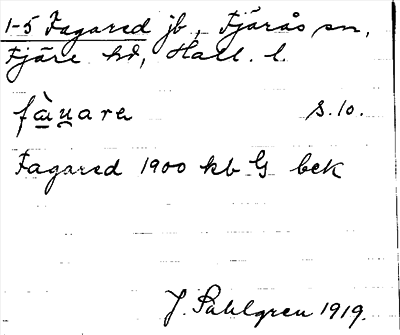 1-5 Fagared jb, Fjärås sn,
Fjäre hd, Hall. l.
fàṉare s. 10.
Fagared 1900 kb G bek
J. Sahlgren 1919.